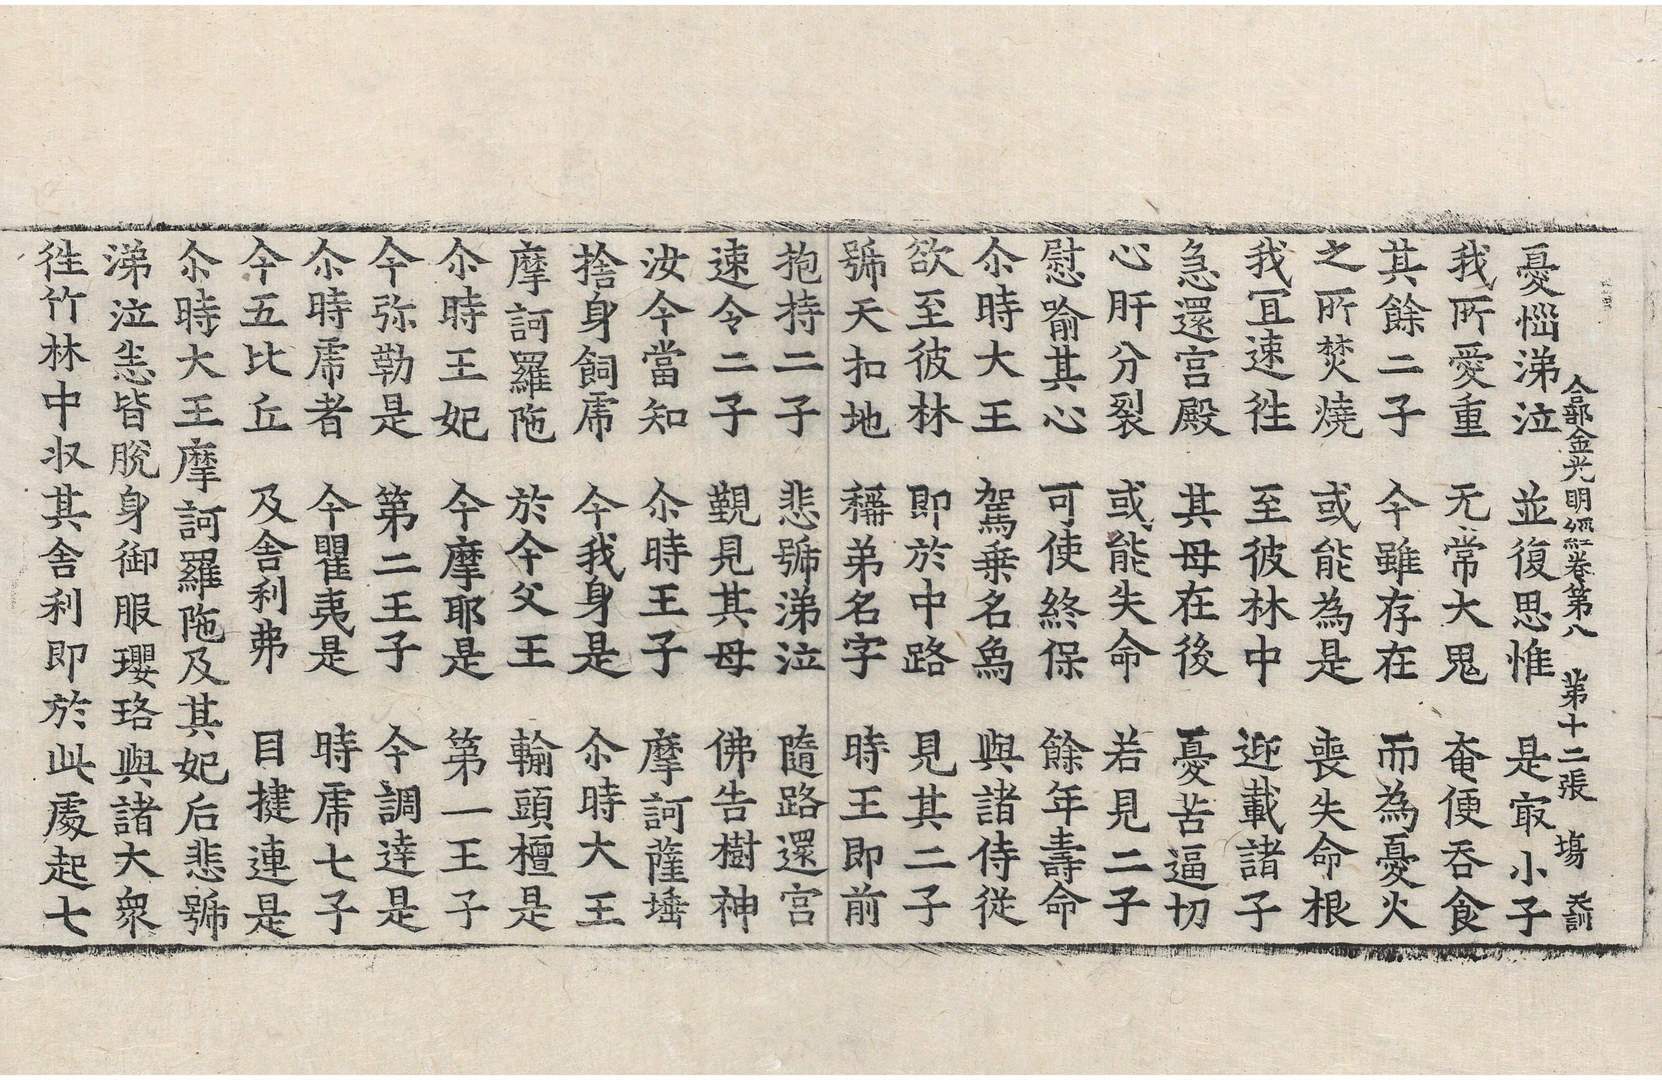 合部金光明經卷第八　第十二張　場　天訓
憂惱涕泣　並復思惟　是㝡小子
我所愛重　无常大鬼　奄便吞食
其餘二子　今雖存在　而為憂火
之所焚燒　或能為是　喪失命根
我宜速徃　至彼林中　迎載諸子
急還宮殿　其母在後　憂苦逼切
心肝分裂　或能失命　若見二子
慰喻其心　可使終保　餘年壽命
尒時大王　駕乗名象　與諸侍從
欲至彼林　即於中路　見其二子
號天扣地　稱弟名字　時王即前
抱持二子　悲號涕泣　隨路還宮
速令二子　覲見其母　佛告樹神
汝今當知　尒時王子　摩訶薩埵
捨身飼虎　今我身是　尒時大王
摩訶羅陁　於今父王　輸頭檀是
尒時王妃　今摩耶是　第一王子
今弥勒是　第二王子　今調達是
尒時虎者　今瞿夷是　時虎七子
今五比丘　及舍利弗　目揵連是
尒時大王摩訶羅陁及其妃后悲號
涕泣悉皆脫身御服瓔珞與諸大衆
徃竹林中收其舍利即於此處起七